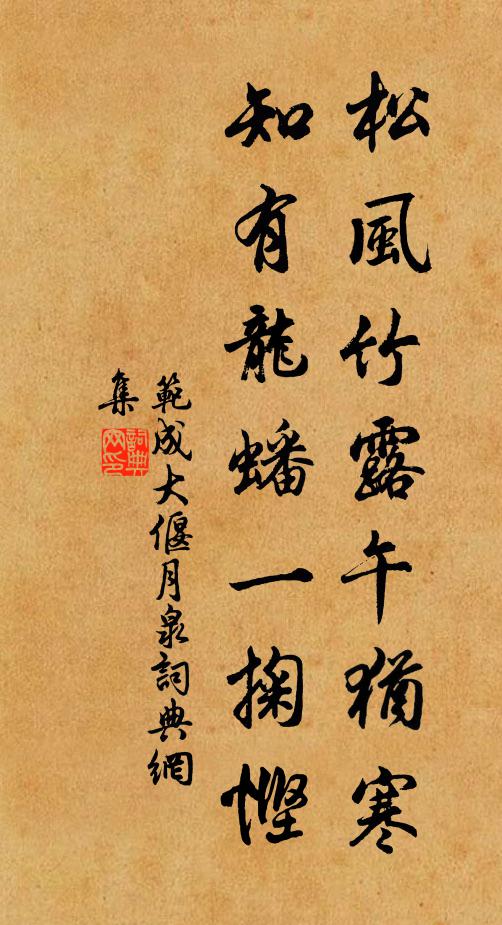 松風竹露午猶寒
知有龍蟠一掬慳
範成大偃月泉詞典網
集
詞典
网印